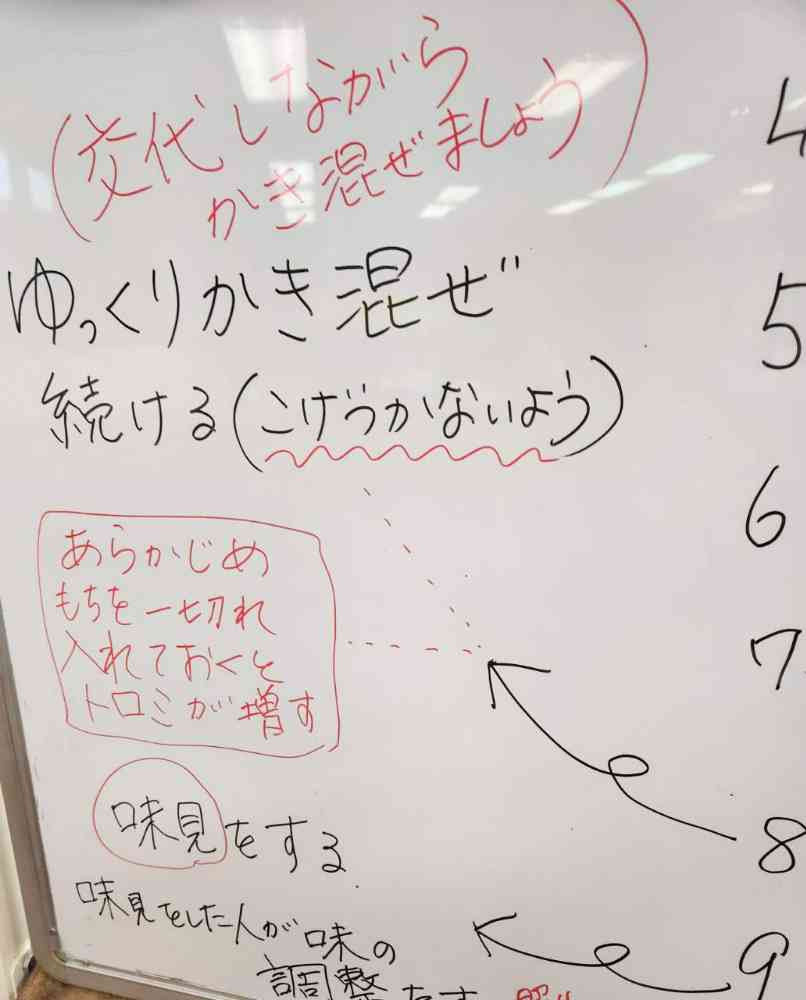 (交代しながら
かき混ぜましょう)
4
ゆっくりかき混ぜ
5
続ける(こげつかないよう)
6
あらかじめ
もちを一切れ
入れておくと
トロミが増す
7
味見をする
8
味見をした人が味の
9
調整